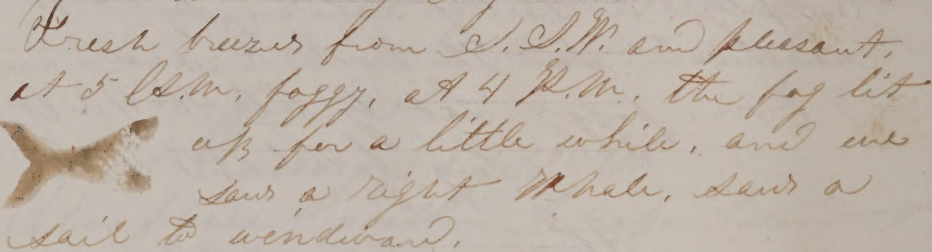 Fresh breezes from S.S.W. and pleasant,
at 5 A.M. foggy, at 4 P.M. the fog lit
up for a little while, and we
saw a right Whale, saw a
sail to windward.